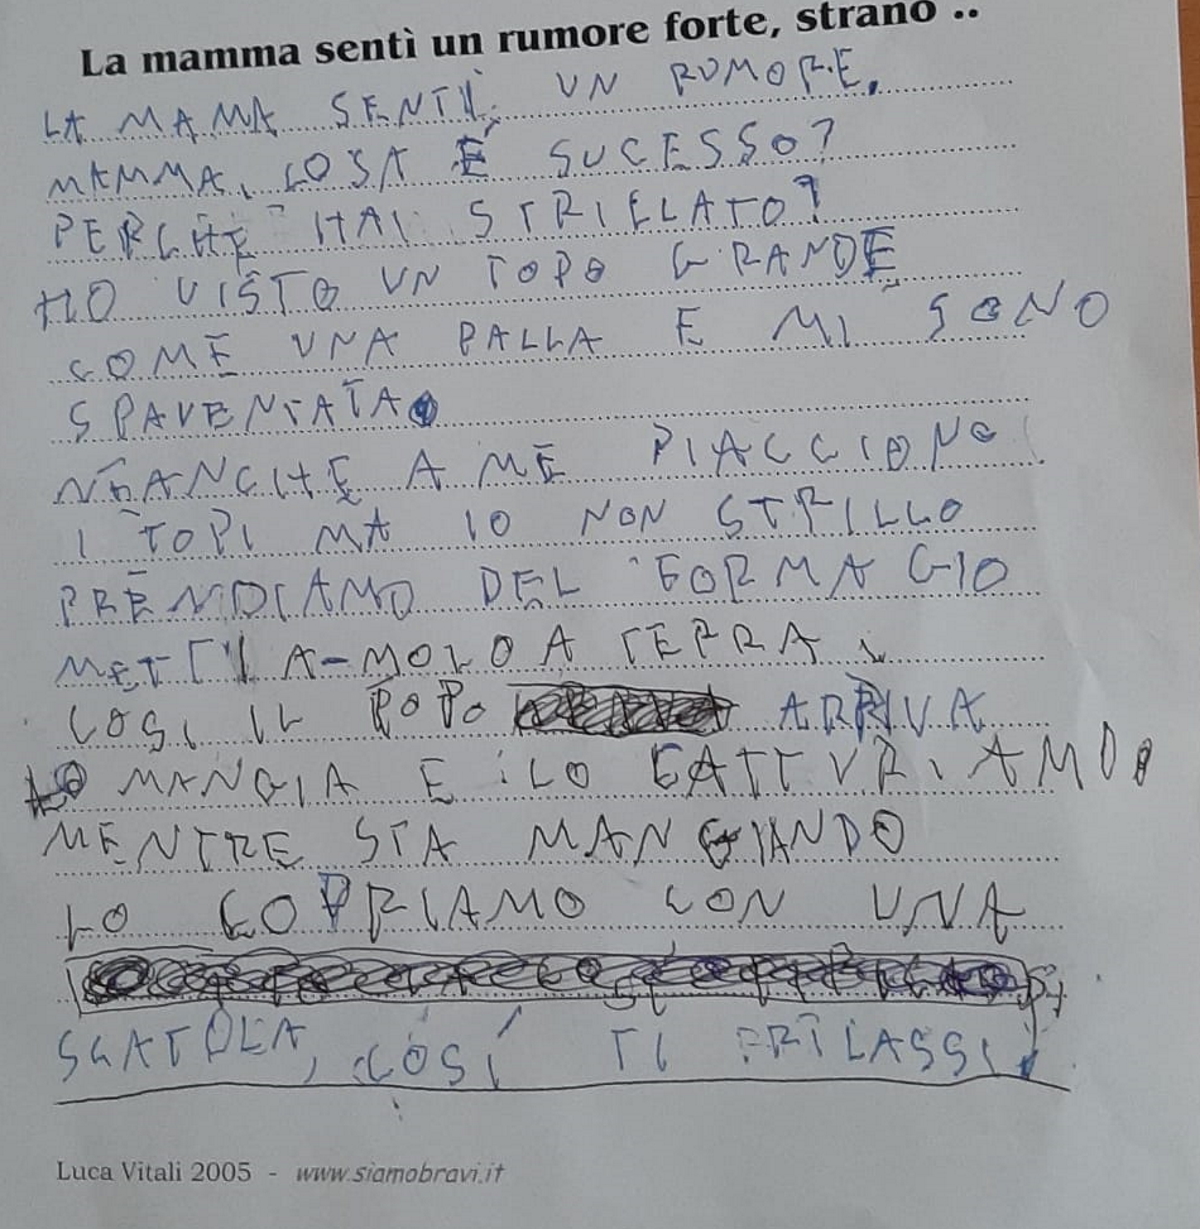 La mamma sentì un rumore forte, strano ..
LA MAMA SENTÌ UN RUMORE.
MAMMA, COSA É SUCESSO?
PERCHE HAI STRIELATO?
HO VISTO UN TOPO GRANDE
COME UNA PALLA E MI SONO
SPAVENTATA.
NEANCHE A ME PIACCIONO
I TOPI MA IO NON STRILLO
PRENDIAMO DEL FORMAGIO
METTIA-MOLO A TERRA
COSI IL POPO ARRIVA
LO MANGIA E LO CATTURIAMO
MENTRE STA MANGIANDO
LO COPRIAMO CON UNA
SCATOLA, COSÍ TI RILASSI
Luca Vitali 2005 - www.siamobravi.it